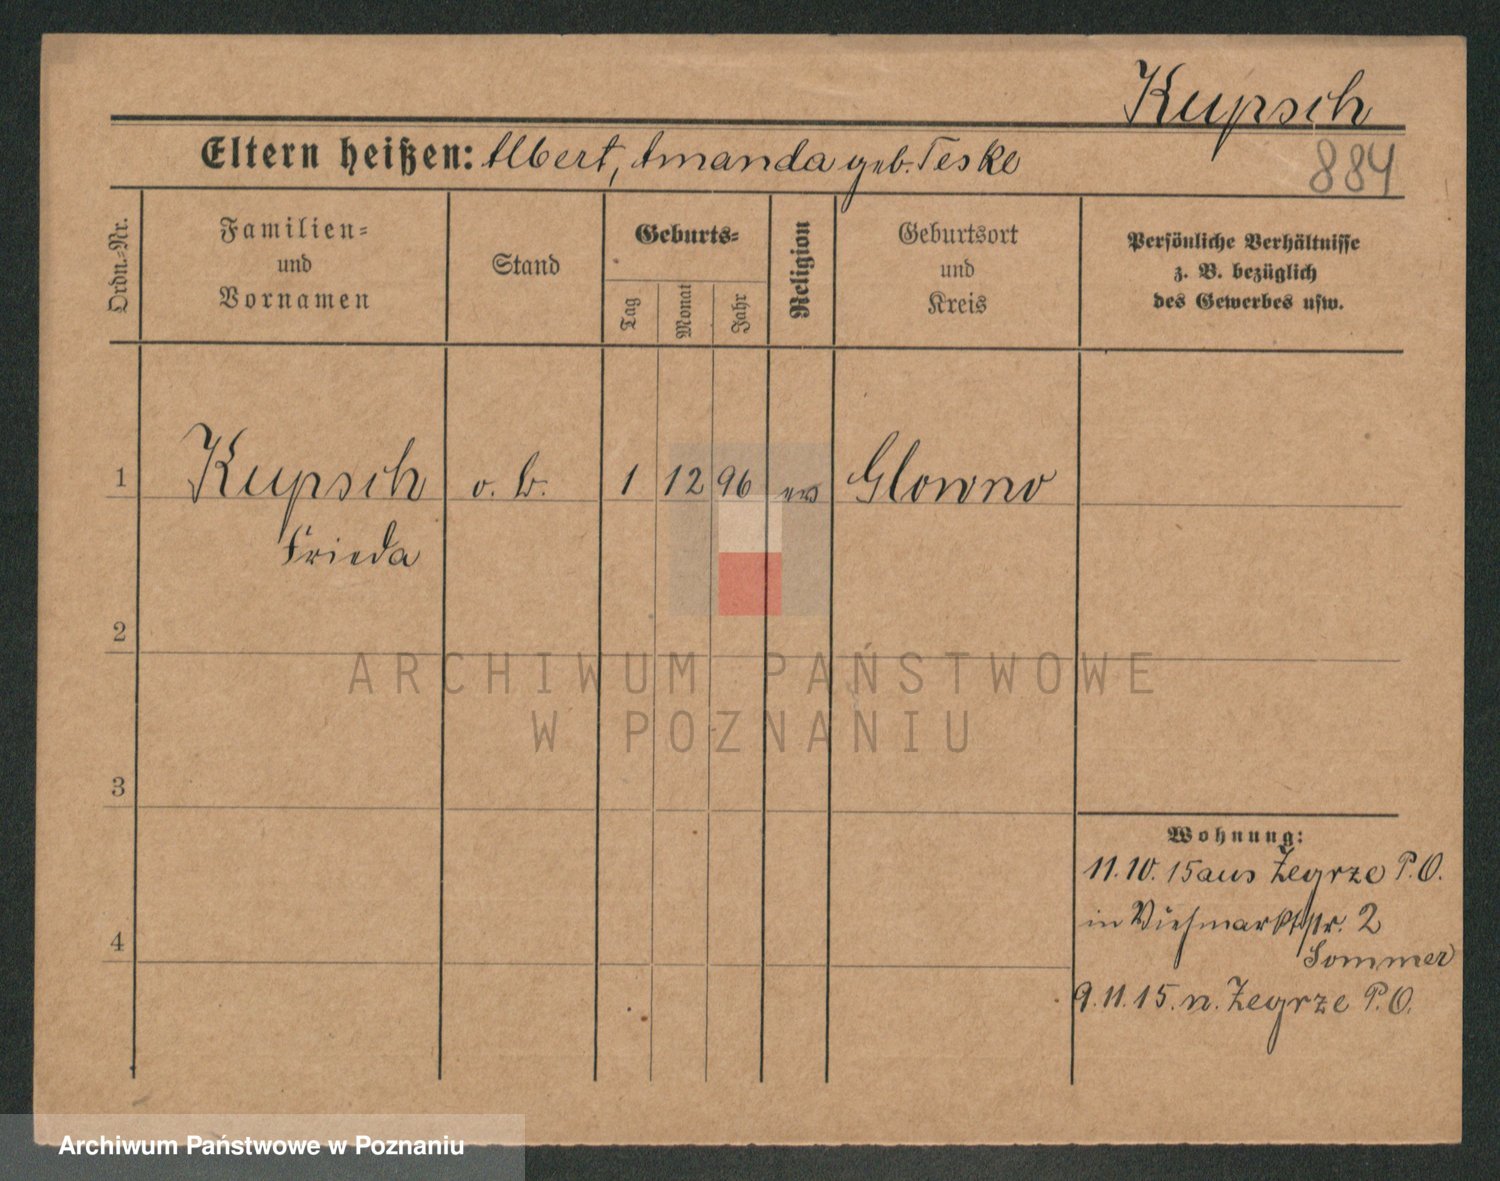 Kupsch
Eltern heißen: Albert, Amanda geb. Teske
884
Ordn.-Nr.
Familien-
und
Vornamen
Stand
Geburts-
Tag
Monat
Jahr
Religion
Geburtsort
und
Kreis
Persönliche Verhältnisse
z. B. bezüglich
des Gewerbes usw.
1 Kupsch o. b. 1 12 96 ev Glowno
Frieda
2
ARCHIWUM PAŃSTWOWE
W POZNANIU
3
Wohnung:
11.10.15 aus Zegrze P.O.
in Viehmarktstr. 2
Sommer
4
9.11.15. n. Zegrze P.O.
Archiwum Państwowe w Poznaniu